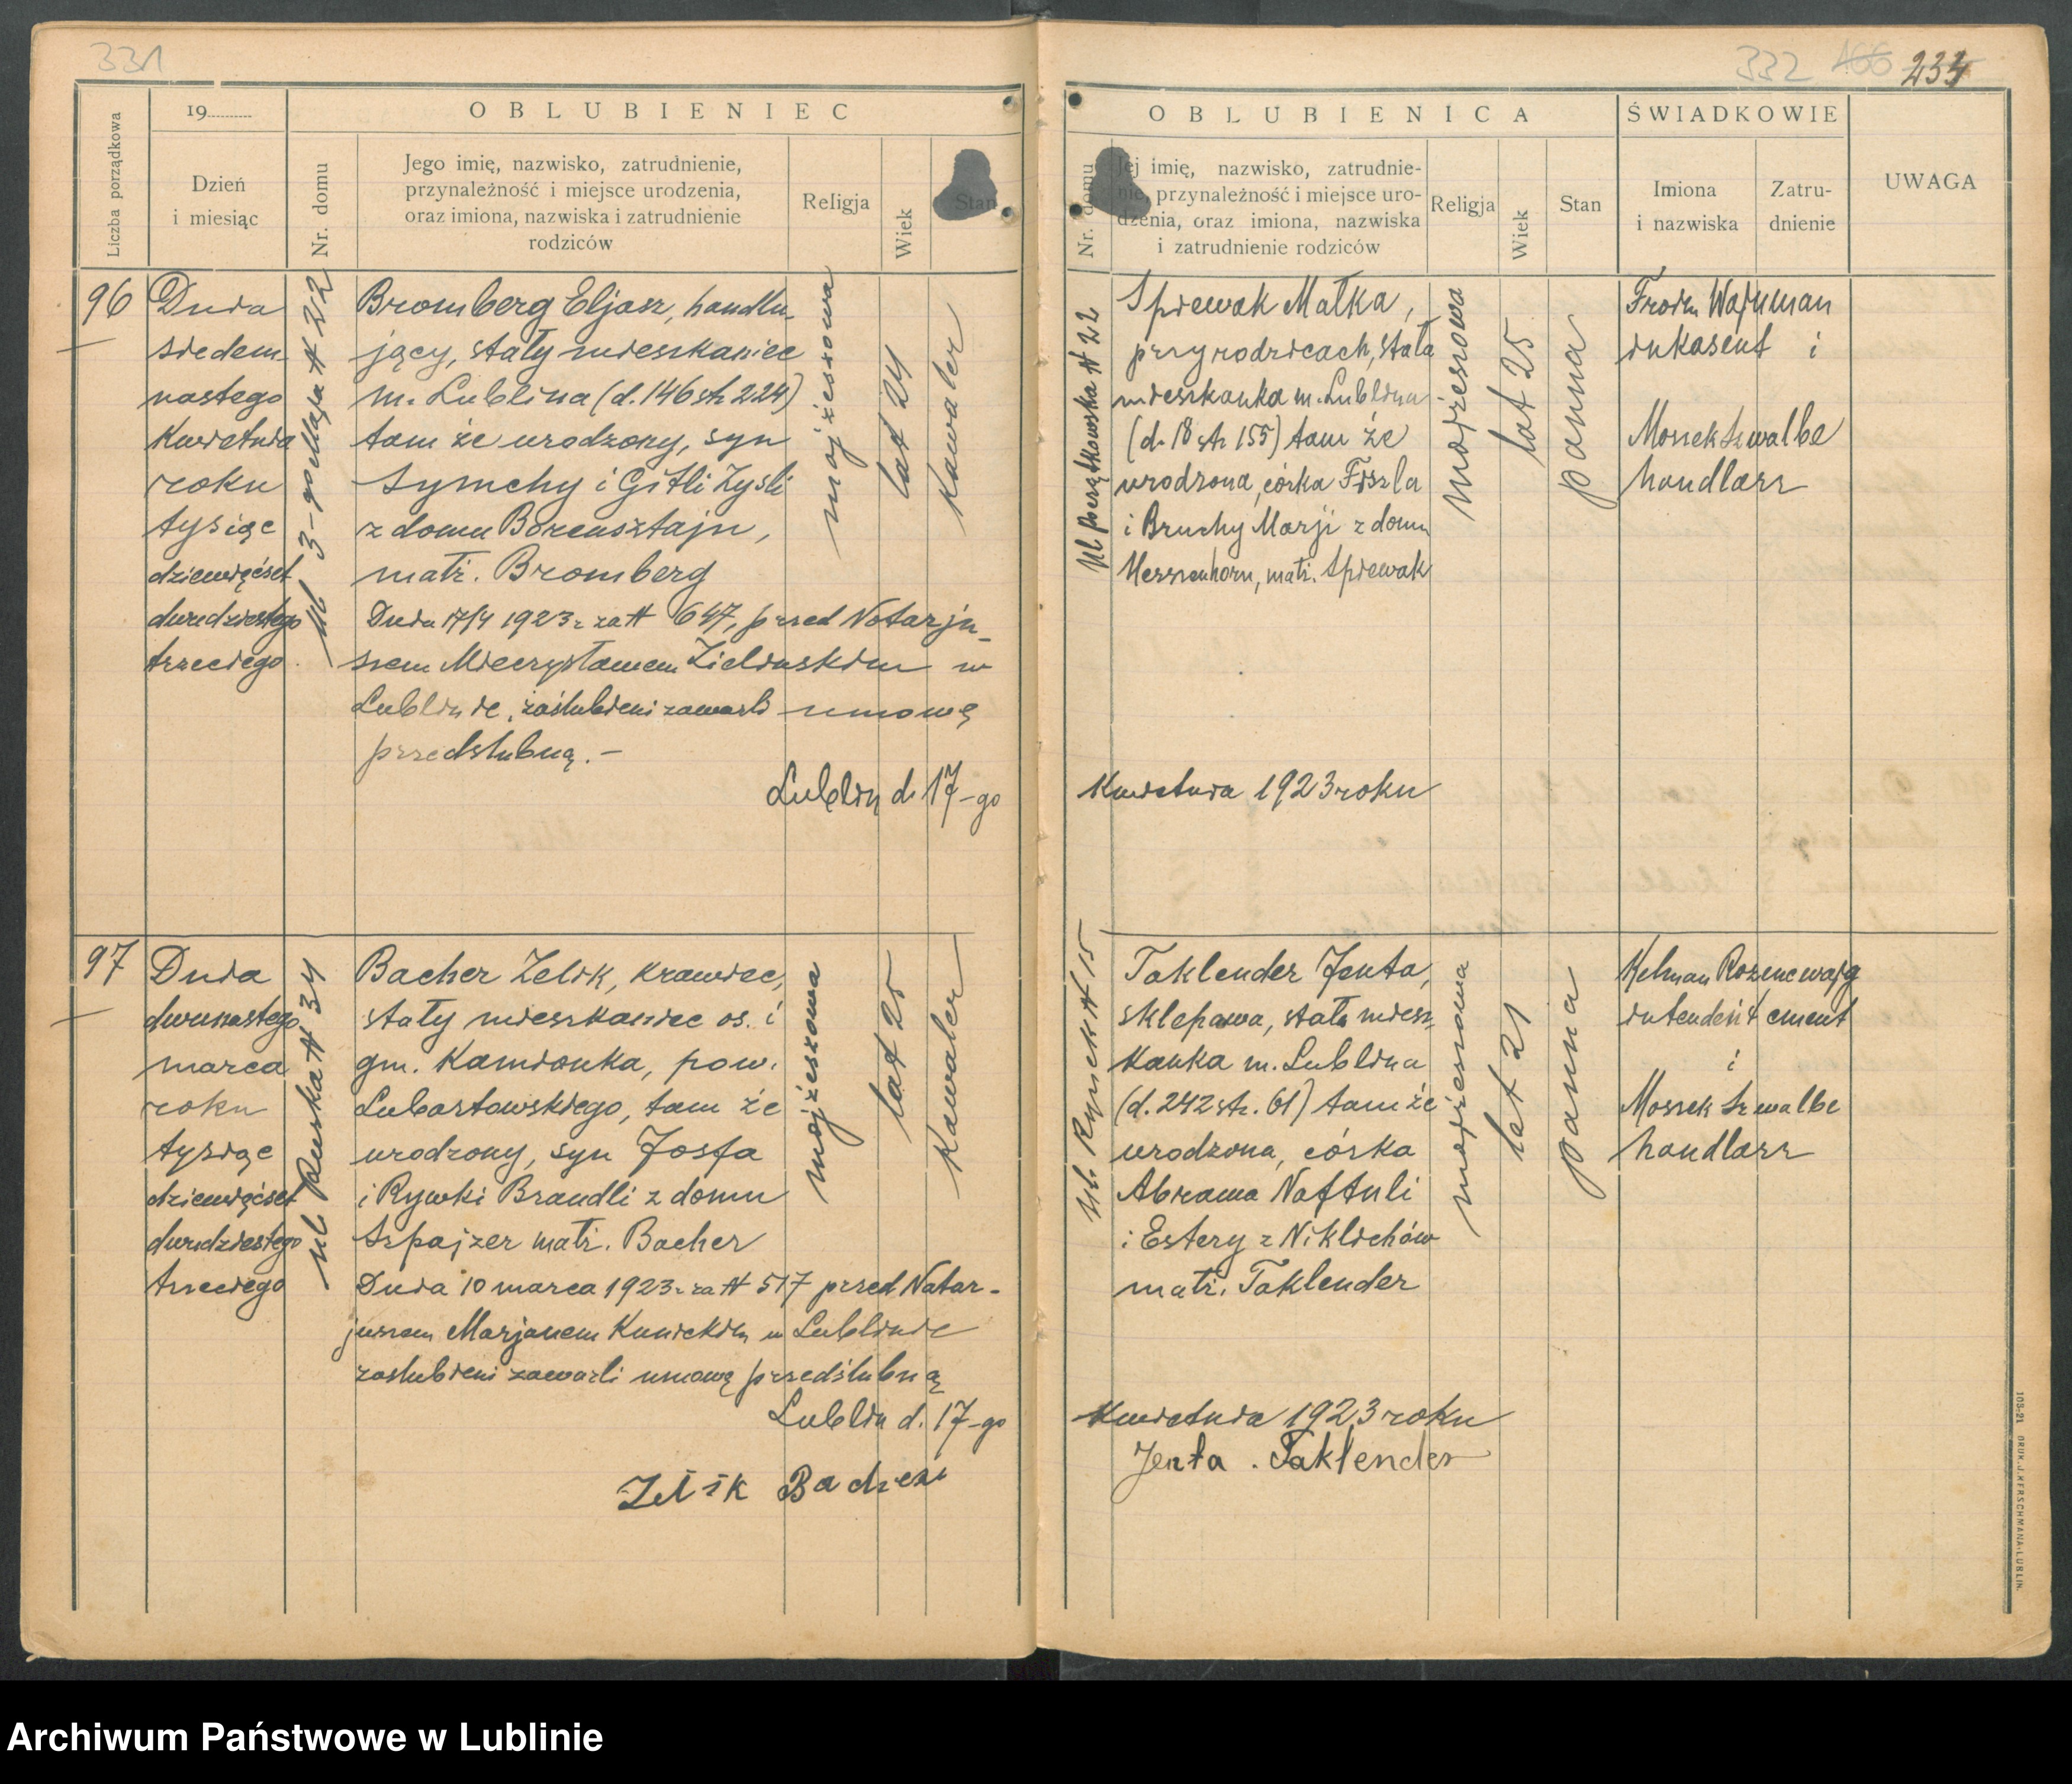 331
332 166 233
19
OBLUBIENIEC
Liczba porządkowa
Dzień
i miesiąc
Nr. domu
Jego imię, nazwisko, zatrudnienie,
przynależność i miejsce urodzenia,
oraz imiona, nazwiska i zatrudnienie
rodziców
Religja
Wiek
Stan
OBLUBIENICA
Nr. domu
Jej imię, nazwisko, zatrudnie-
nie, przynależność i miejsce uro-
dzenia, oraz imiona, nazwiska
i zatrudnienie rodziców
Religja
Wiek
Stan
ŚWIADKOWIE
Imiona
i nazwiska
Zatru-
dnienie
UWAGA
96
Dnia
siedem
nastego
Kwietnia
roku
tysiąc
dziewięćset
dwudziestego
trzeciego
ul 3-go Maja № 22
Bromberg Eljasz, handlu-
jący, stały mieszkaniec
m. Lublina (d. 146 str 224)
tam że urodzony, syn
Symchy i Gitli Zysli
z domu Borensztajn,
małż. Bromberg
mojżeszowa
lat 24
Kawaler
Dnia 17/4 1923 r za № 647, przed Notarju-
szem Mieczysławem Zielinskim w
Lublinie, zaślubieni zawarli umowę
przedślubną. —
Lublin d. 17-go
Kwietnia 1923 roku
Spiewak Małka,
przy rodzicach, stała
mieszkanka m. Lublina
(d. 18 str 155) tam że
urodzona, córka Fiszla
i Bruchy Marji z domu
Messenhorn, małż. Spiewak
mojżeszowa
lat 25
panna
Froim Wajnman
inkasent i
Moszek Szwalbe
handlarz
97
Dnia
dwunastego
marca
roku
tysiąc
dziewięćset
dwudziestego
trzeciego
ul Ruska № 34
Bacher Zelik, krawiec,
stały mieszkaniec os. i
gm. Kamionka, pow.
Lubartowskiego, tam że
urodzony, syn Josfa
i Rywki Brandli z domu
Szpajzer małż. Bacher
mojżeszowa
lat 25
Kawaler
Dnia 10 marca 1923 r za № 517 przed Notar-
juszem Marjanem Kunickim w Lublinie
zaślubieni zawarli umowę przedślubną
Lublin d. 17-go
Kwietnia 1923 roku
Zelik Bacher
Jenta Taklender
ul. Rynek № 15
Taklender Jenta,
sklepowa, stała miesz-
kanka m. Lublina
(d. 242 str. 61) tam że
urodzona, córka
Abrama Naftuli
i Estery z Niklichów
małż. Taklender
mojżeszowa
lat 21
panna
Kelman Rozencwajg
intendent cment
i
Moszek Szwalbe
handlarz
108-21 DRUK. J. KERSCHMANA-LUBLIN.
Archiwum Państwowe w Lublinie